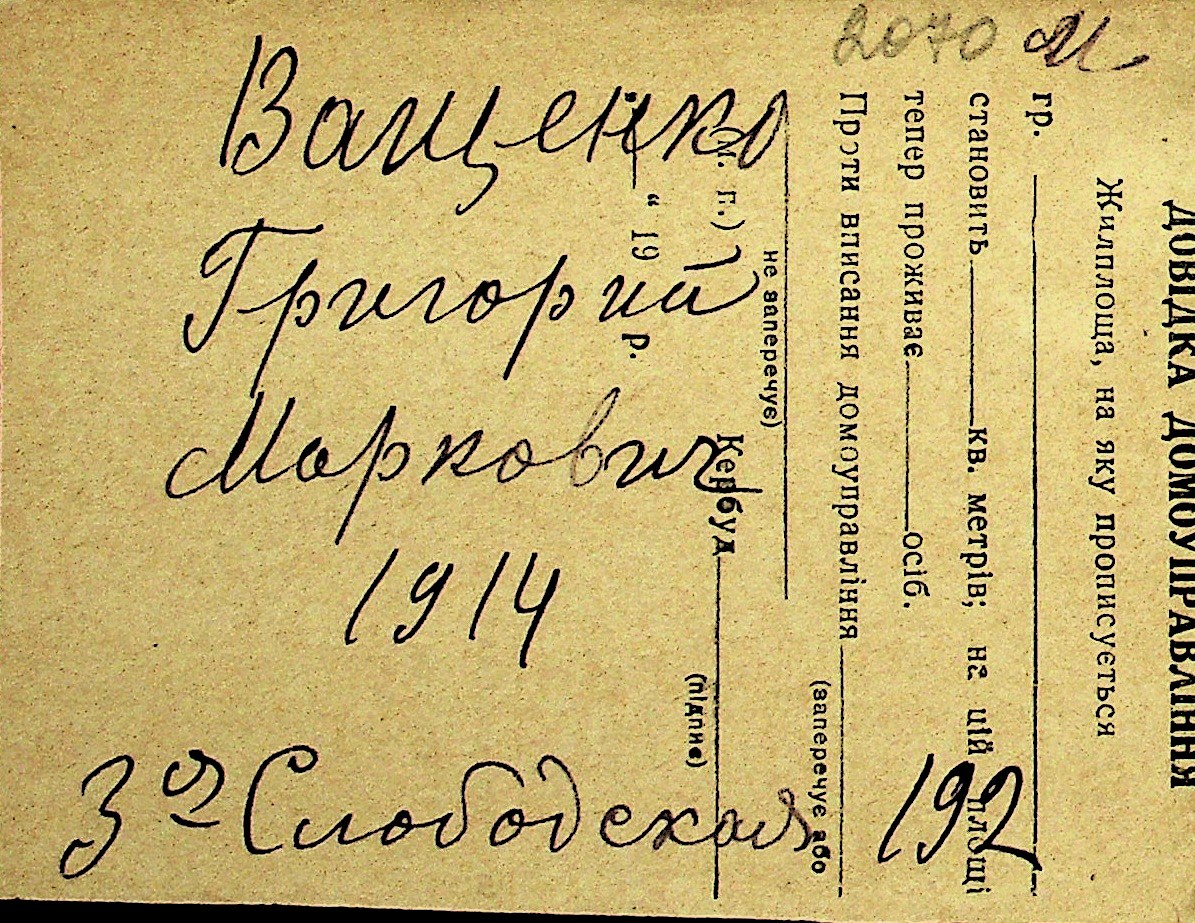 2070 М
Ващенко
Григорий
Маркович
1914
3ая Слободская 192
ДОВІДКА ДОМОУПРАВЛІННЯ
Жилплоща, на яку прописується
гр.
становить кв. метрів; на цій площі
тепер проживає осіб.
Проти вписання домоуправління
(заперечує або
не заперечує)
Кербуд
(підпис)
(М. п.)
“ 19 р.